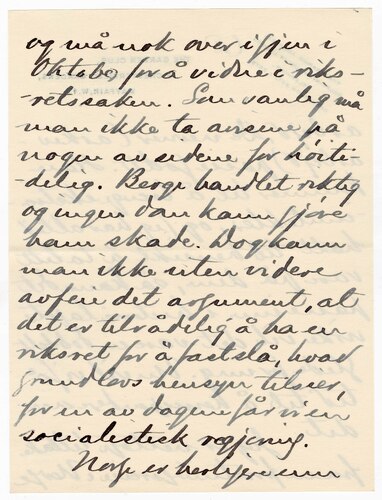 og må nok over igjen i
Oktober for å vidne i riks-
retssaken. Som vanlig må
man ikke ta avisene på
nogen av sidene for høiti-
delig. Berge handlet riktig
og ingen dom kann gjøre
ham skade. Dog kann
man ikke uten videre
avfeie det argument, at
det er tilrådelig å ha en
riksret for å fastslå, hvad
grundlovs hensyn tilsier,
for en av dagene får vi en
socialistisk regjering.
Norge er herligere enn